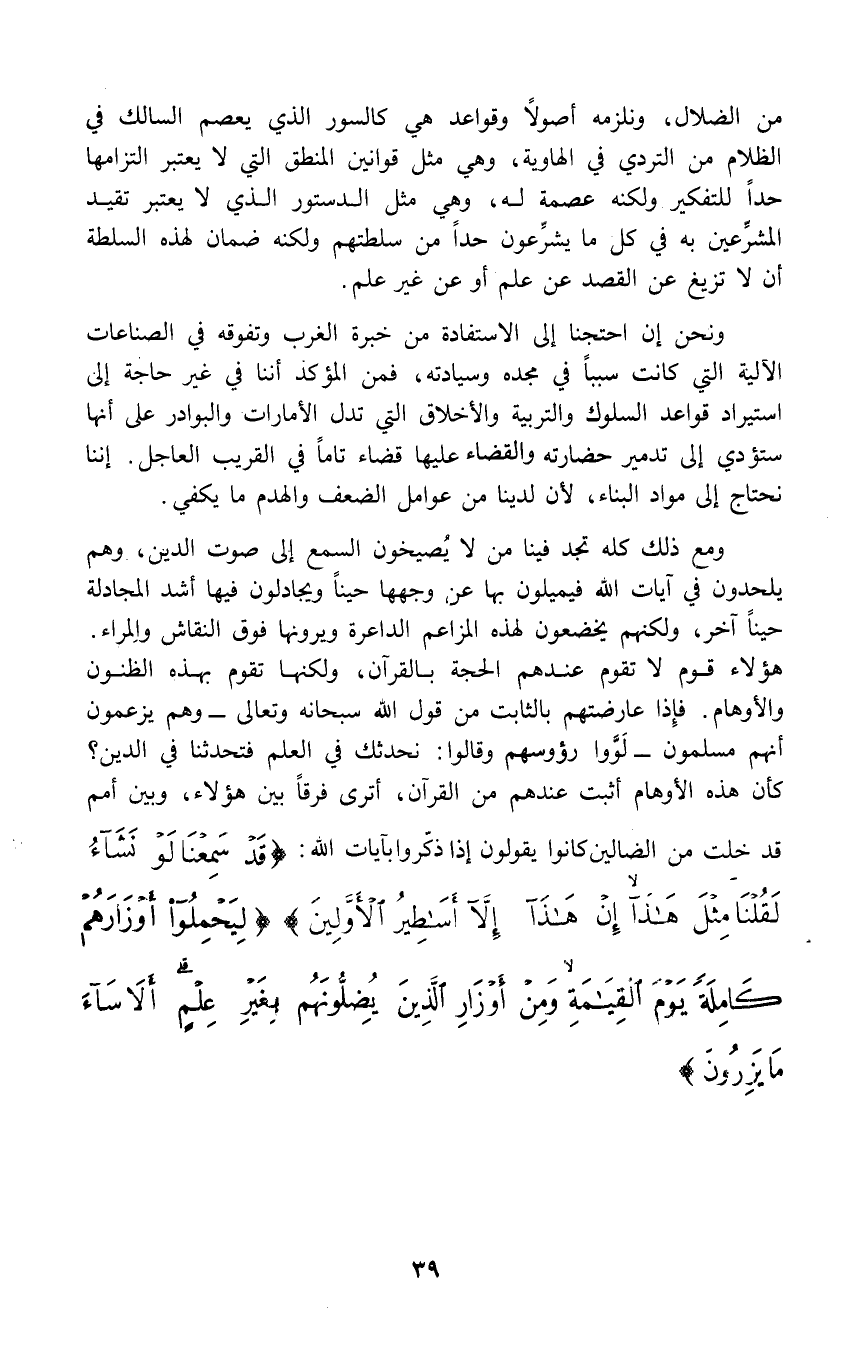 من الضلال، ونلزمه أصولاً وقواعد هي كالسور الذي يعصم السالك في
الظلام من التردي في الهاوية، وهي مثل قوانين المنطق التي لا يعتبر التزامها
حداً للتفكير ولكنه عصمة لـه، وهي مثل الـدستور الـذي لا يعتبر تقيـد
المشرِّعين به في كل ما يشرِّعون حداً من سلطتهم ولكنه ضمان لهذه السلطة
أن لا تزيغ عن القصد عن علم أو عن غير علم.
ونحن إن احتجنا إلى الاستفادة من خبرة الغرب وتفوقه في الصناعات
الآلية التي كانت سبباً في مجده وسيادته، فمن المؤكد أننا في غير حاجة إلى
استيراد قواعد السلوك والتربية والأخلاق التي تدل الأمارات والبوادر على أنها
ستؤدي إلى تدمير حضارته والقضاء عليها قضاء تاماً في القريب العاجل. إننا
نحتاج إلى مواد البناء، لأن لدينا من عوامل الضعف والهدم ما يكفي.
ومع ذلك كله تجد فينا من لا يُصيخون السمع إلى صوت الدين، وهم
يلحدون في آيات الله فيميلون بها عن وجهها حيناً ويجادلون فيها أشد المجادلة
حيناً آخر، ولكنهم يخضعون لهذه المزاعم الداعرة ويرونها فوق النقاش والمراء.
هؤلاء قـوم لا تقوم عنـدهم الحجة بـالقرآن، ولكنهـا تقوم بهـذه الظنـون
والأوهام. فإذا عارضتهم بالثابت من قول الله سبحانه وتعالى ــ وهم يزعمون
أنهم مسلمون ــ لَوَّوا رؤوسهم وقالوا: نحدثك في العلم فتحدثنا في الدين؟
كأن هذه الأوهام أثبت عندهم من القرآن، أترى فرقاً بين هؤلاء، وبين أمم
قد خلت من الضالين كانوا يقولون إذا ذكّروا بآيات الله: ﴿قَدْ سَمِعْنَا لَوْ نَشَآءُ
لَقُلْنَا مِثْلَ هَـٰذَآۙ إِنْ هَـٰذَآ إِلَّآ أَسَـٰطِيرُ ٱلْأَوَّلِينَ﴾ ﴿لِيَحْمِلُوٓا۟ أَوْزَارَهُمْ
كَامِلَةً يَوْمَ ٱلْقِيَـٰمَةِۙ وَمِنْ أَوْزَارِ ٱلَّذِينَ يُضِلُّونَهُم بِغَيْرِ عِلْمٍۗ أَلَا سَآءَ
مَا يَزِرُونَ﴾
٣٩